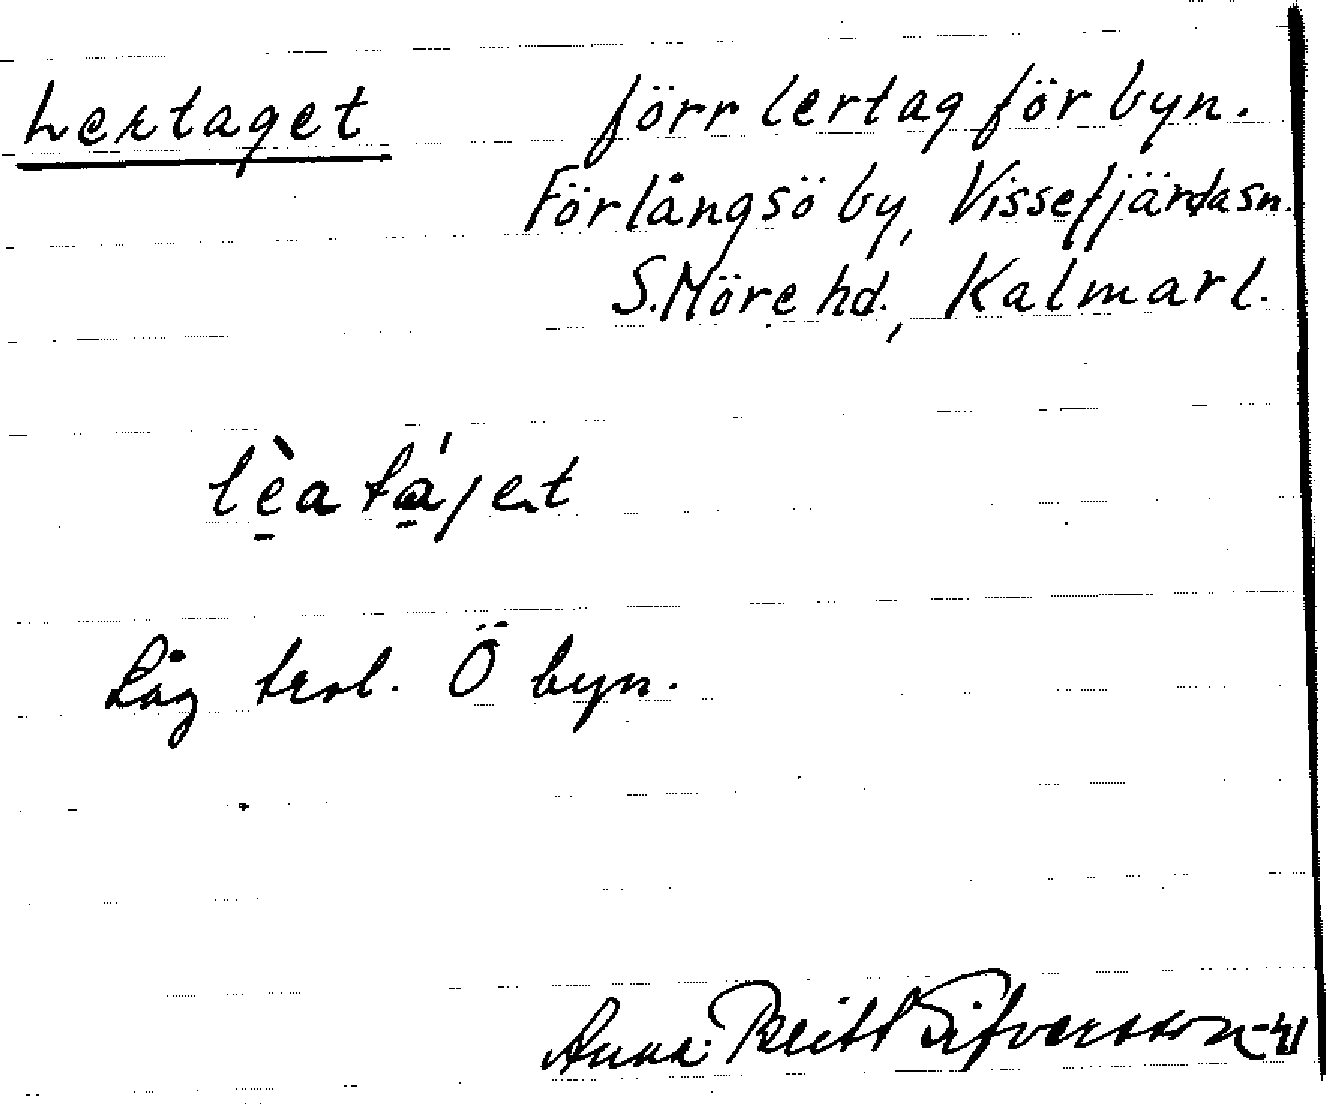 Lertaget förr lertag för byn.
Förlångsö by, Vissefjärda sn.
S. Möre hd., Kalmar l.
lèatájet
Låg trol. Ö byn.
Anna-Britt Sifversson